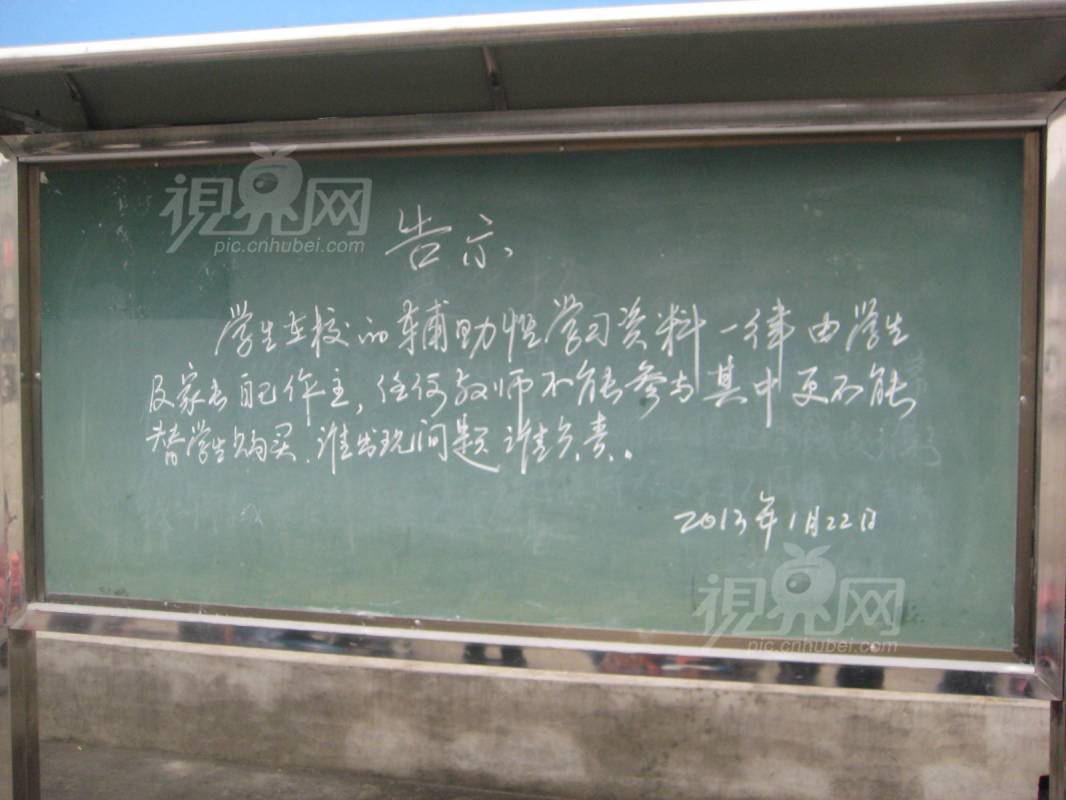 視界网
pic.cnhubei.com
告示
学生在校的辅助性学习资料一律由学生
及家长自己作主,任何教师不能参与其中更不能
替学生购买.谁出现问题谁负责。
2013年1月22日
視界网
pic.cnhubei.com